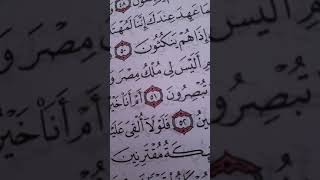 ٤٨
مَا عَهِدَ عِندَكَ إِنَّنَا لَمُهْتَ
إِذَا هُمْ يَنكُثُونَ ٥٠
مِ أَلَيْسَ لِى مُلْكُ مِصْرَ وَ
تُبْصِرُونَ ٥١ أَمْ أَنَا۠ خَيْرٌ
ينُ ٥٢ فَلَوْلَآ أُلْقِىَ عَلَيْ
ئِكَةُ مُقْتَرِنِينَ